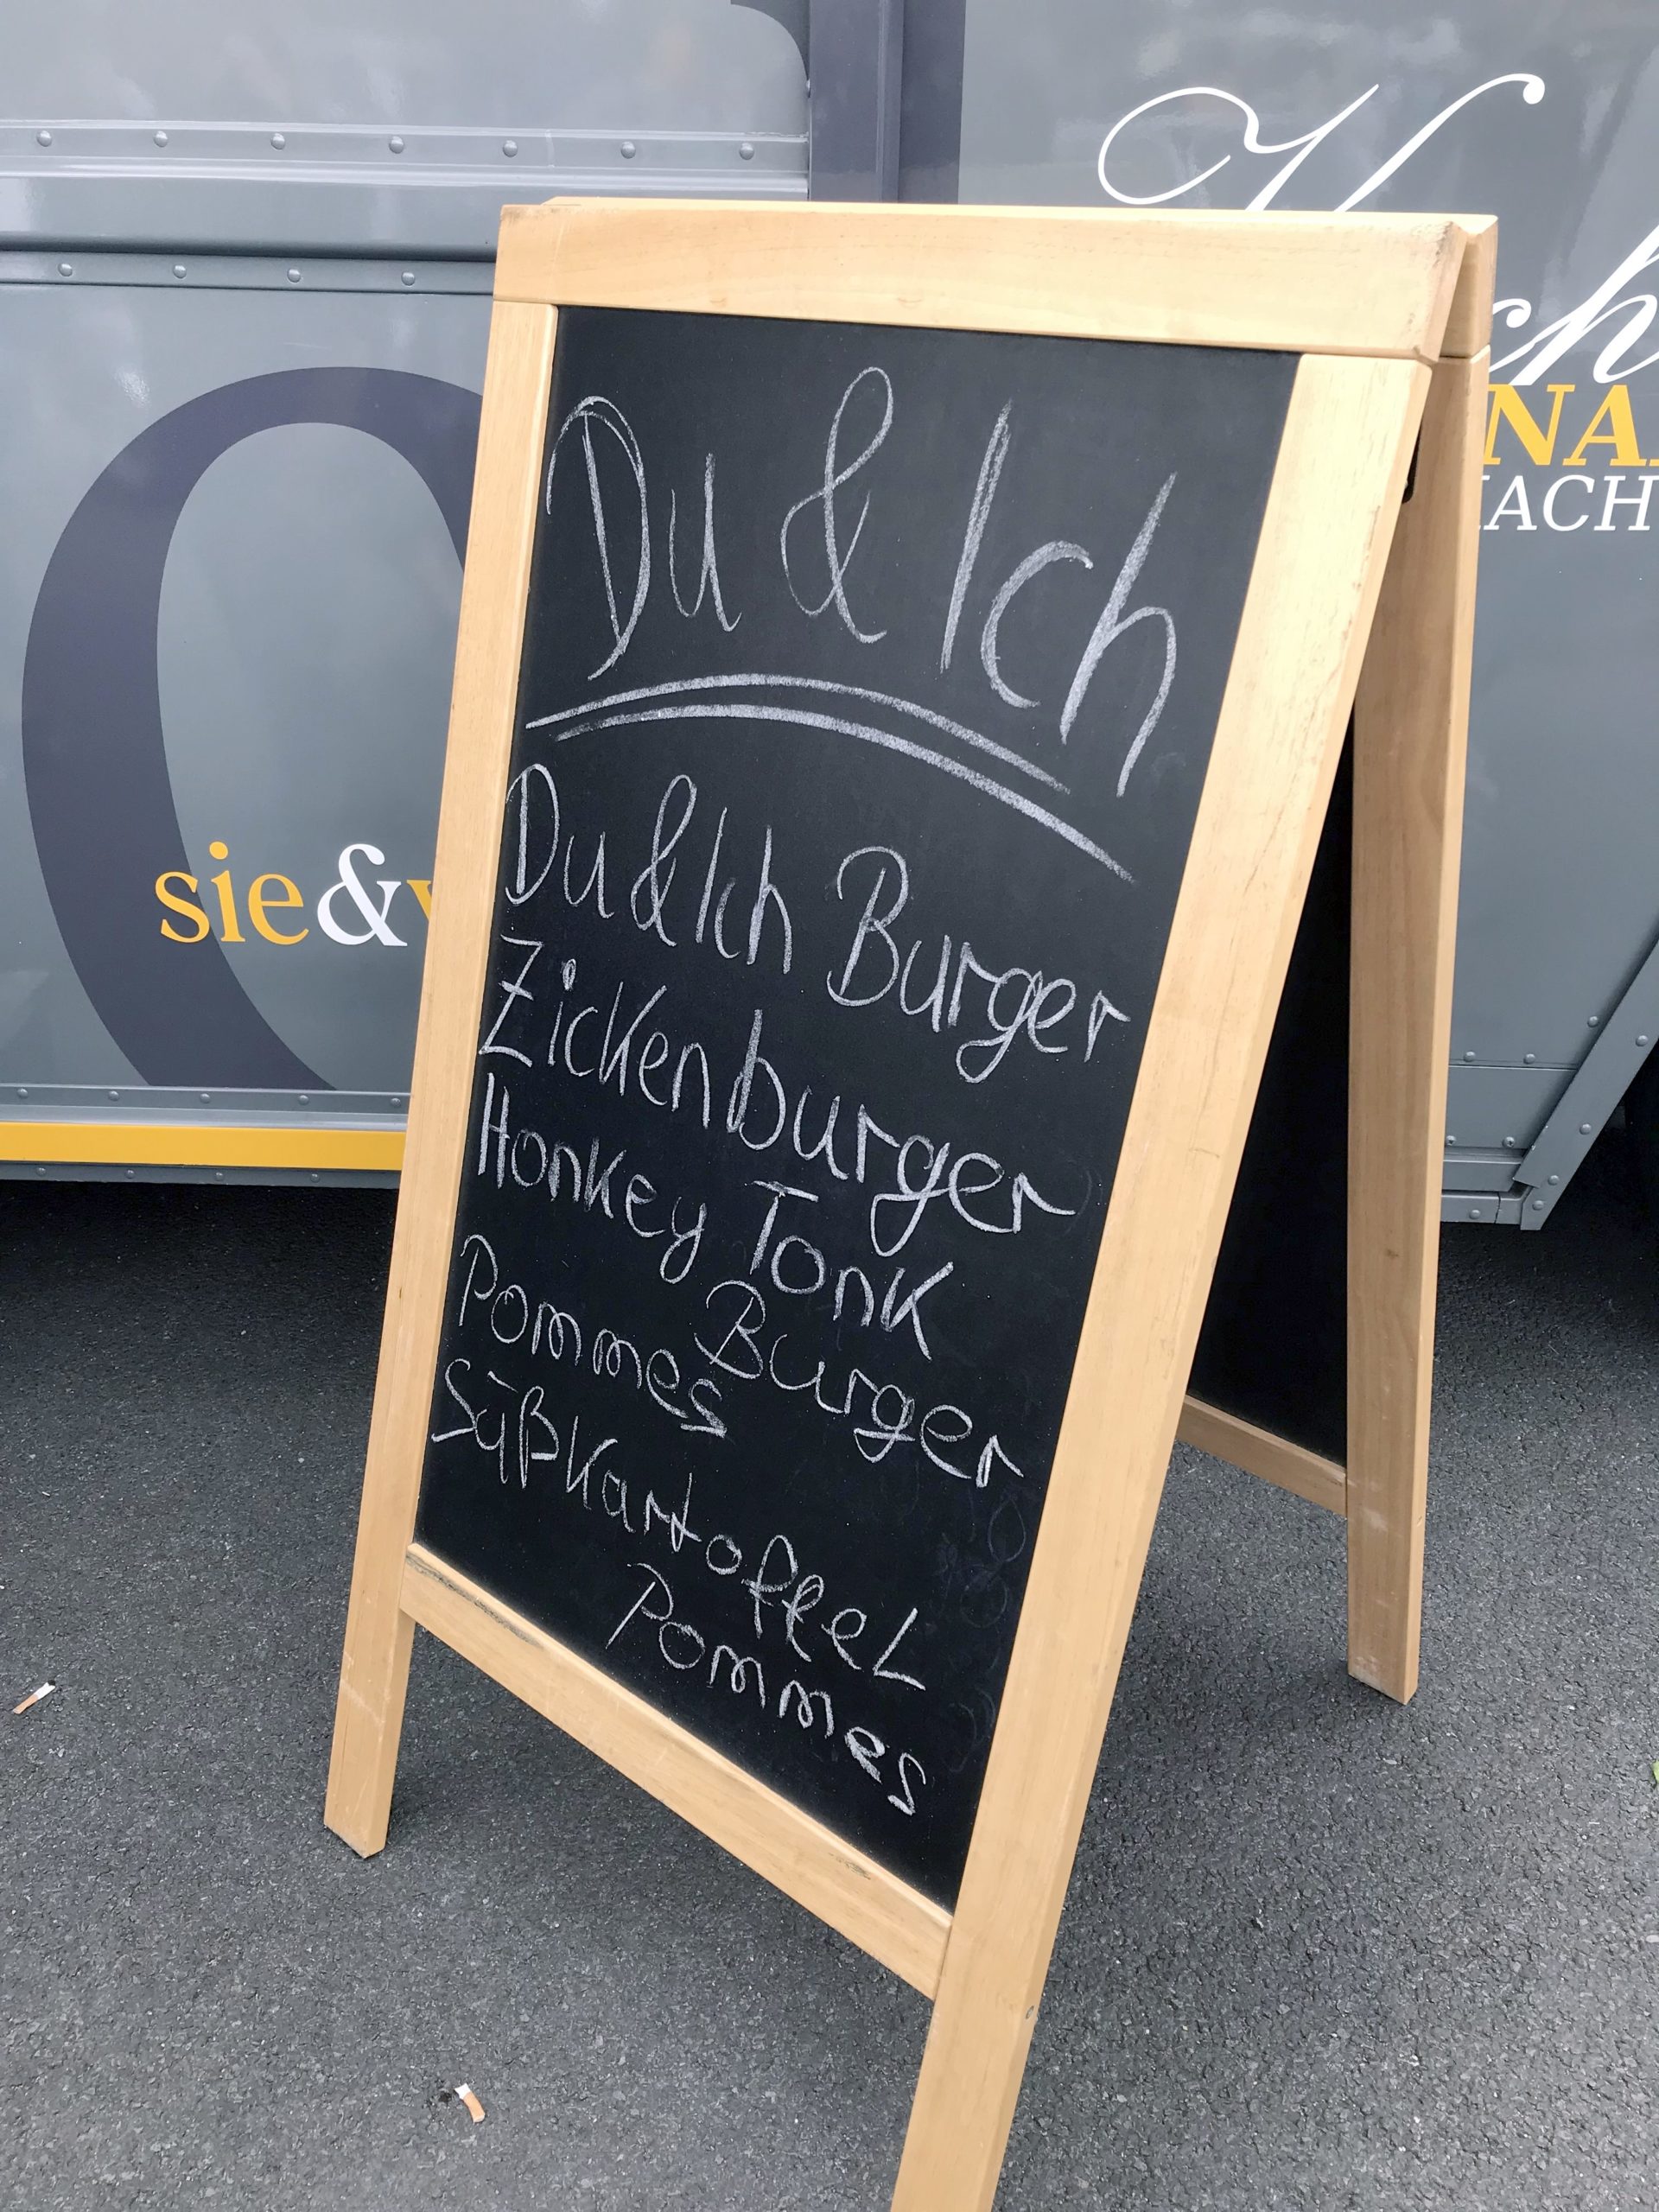 Du & Ich
Du & Ich Burger
Zickenburger
Honkey Tonk
Burger
Pommes
Süßkartoffel
Pommes
sie&
ch
NA
ACH